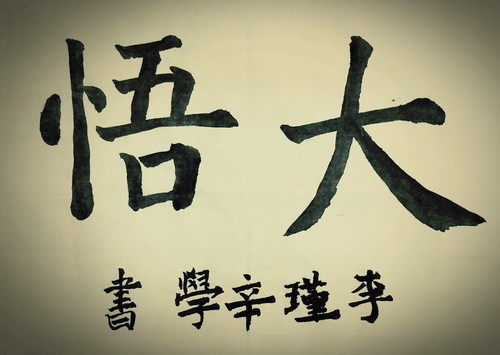 大悟
李瑾辛學書